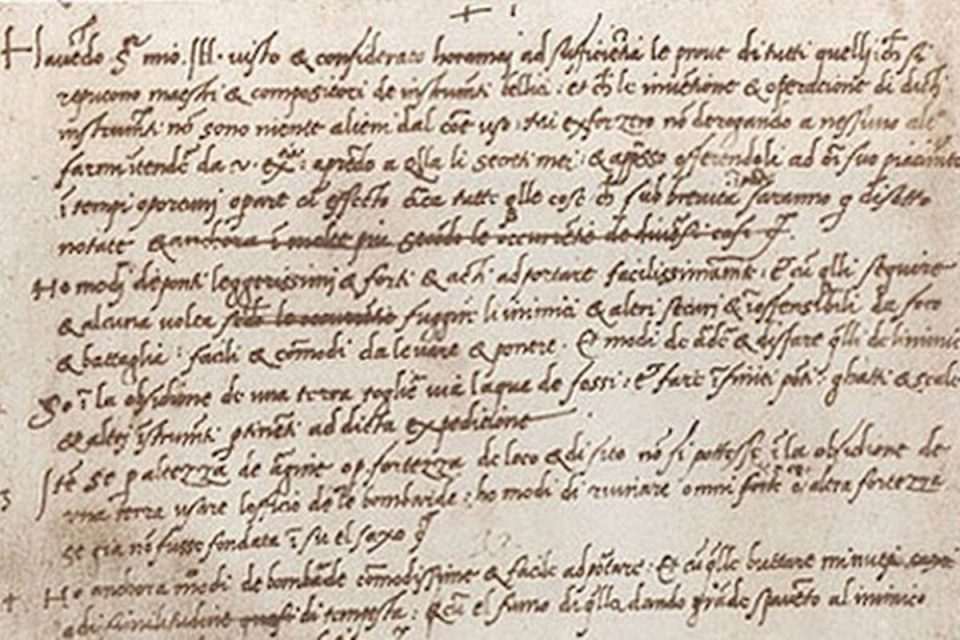 Havẽdo S.r mio Ill. visto & considerato horamai ad sufficiẽtia le prove di tutti quelli ch si
reputono maestri & compositori de instrumti bellici: et ch le inventione & operatione di dicti
instrumti nõ sono niente alieni dal cõe uso: mi exforzero nõ derogando a nessuno
farmi intendẽ da v. ex.tia: aprẽdo a qlla li secreti mei: & appsso offerendoli ad õi suo piacimto
ĩ tempi oportuni operare cũ effecto ca tutte qlle cose ch sub brevita saranno q disotto
notate & anchora ĩ molte piu secõdo le occurrẽtie de diversi casi
Ho modi de ponti leggerissimi & forti & acti ad portare facilissimamte: Et cũ qlli seguire
& alcuna volta fuggir li inimici & altri securi & ĩoffensibili da foco
& battaglia: facili & cõmodi da levare & ponere. Et modi de ardẽ & disfare qlli de linimic
So ĩ la obsidione de una terra toglier via laqua de fossi: et fare ĩfiniti põti: ghatti & scale
& altri ĩstrumti ptinẽti ad dicta expeditione
Itẽ se p altezza de argine o p fortezza de loco & di sito nõ si pottesse ĩ la obsidione de
una terra usare lofficio de le bombarde: ho modi di ruinare omni forte o altra fortezza
se già nõ fusse fondata ĩ su el saxo
Ho anchora modi de bombarde cõmodissime & facile ad portare: Et cũ qlle buttare minuti
adi similitudine quasi di tempesta: & cũ el fumo di qlla dando grãde spavẽto al inimico